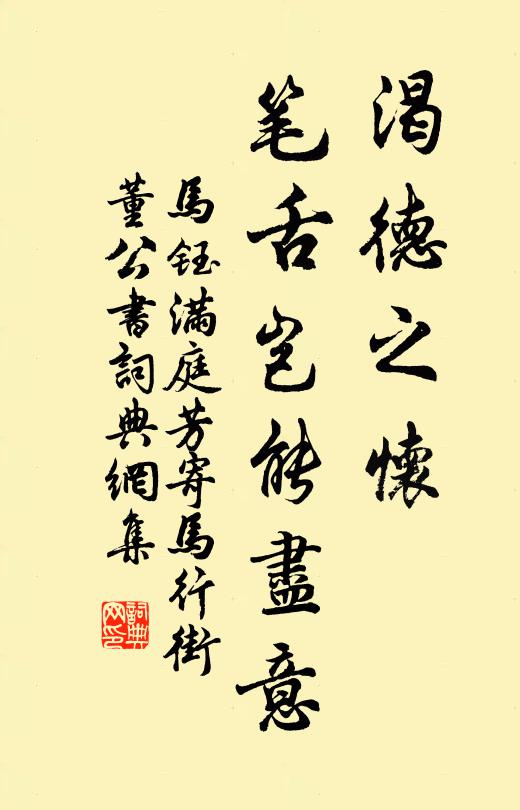 渴德之懷
笔舌岂能盡意
馬鈺滿庭芳寄馬行街
董公書詞典網集
詞典
网印